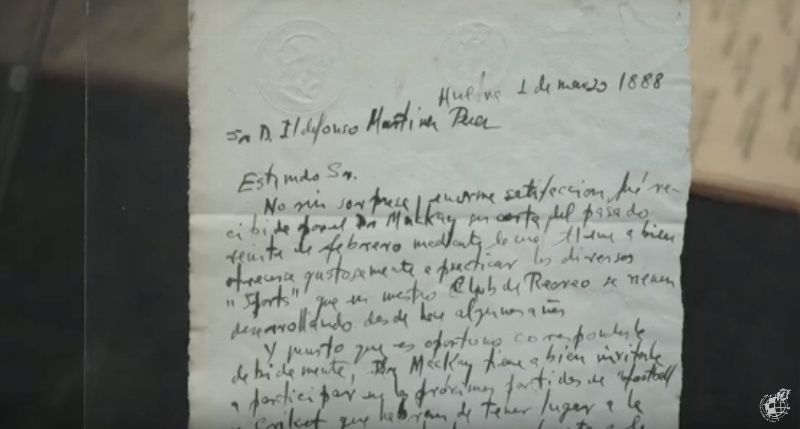 Huelva 1 de marzo 1888
Sr D. Ildefonso Martinez
Estimado Sr.
No sin sorpresa y enorme satisfaccion, fué re-
cibida por el Dr Mackay su carta del pasado
veinte de febrero mediante la cual tiene a bien
ofrecerse gustosamente a practicar los diversos
"Sports" que en nuestro Club de Recreo se vienen
desarrollando desde hace algunos años
Y puesto que es oportuno corresponderle
debidamente, Dr Mackay tiene a bien invitarle
a participar en los próximos partidos de "football"
y Criket que habrán de tener lugar a la